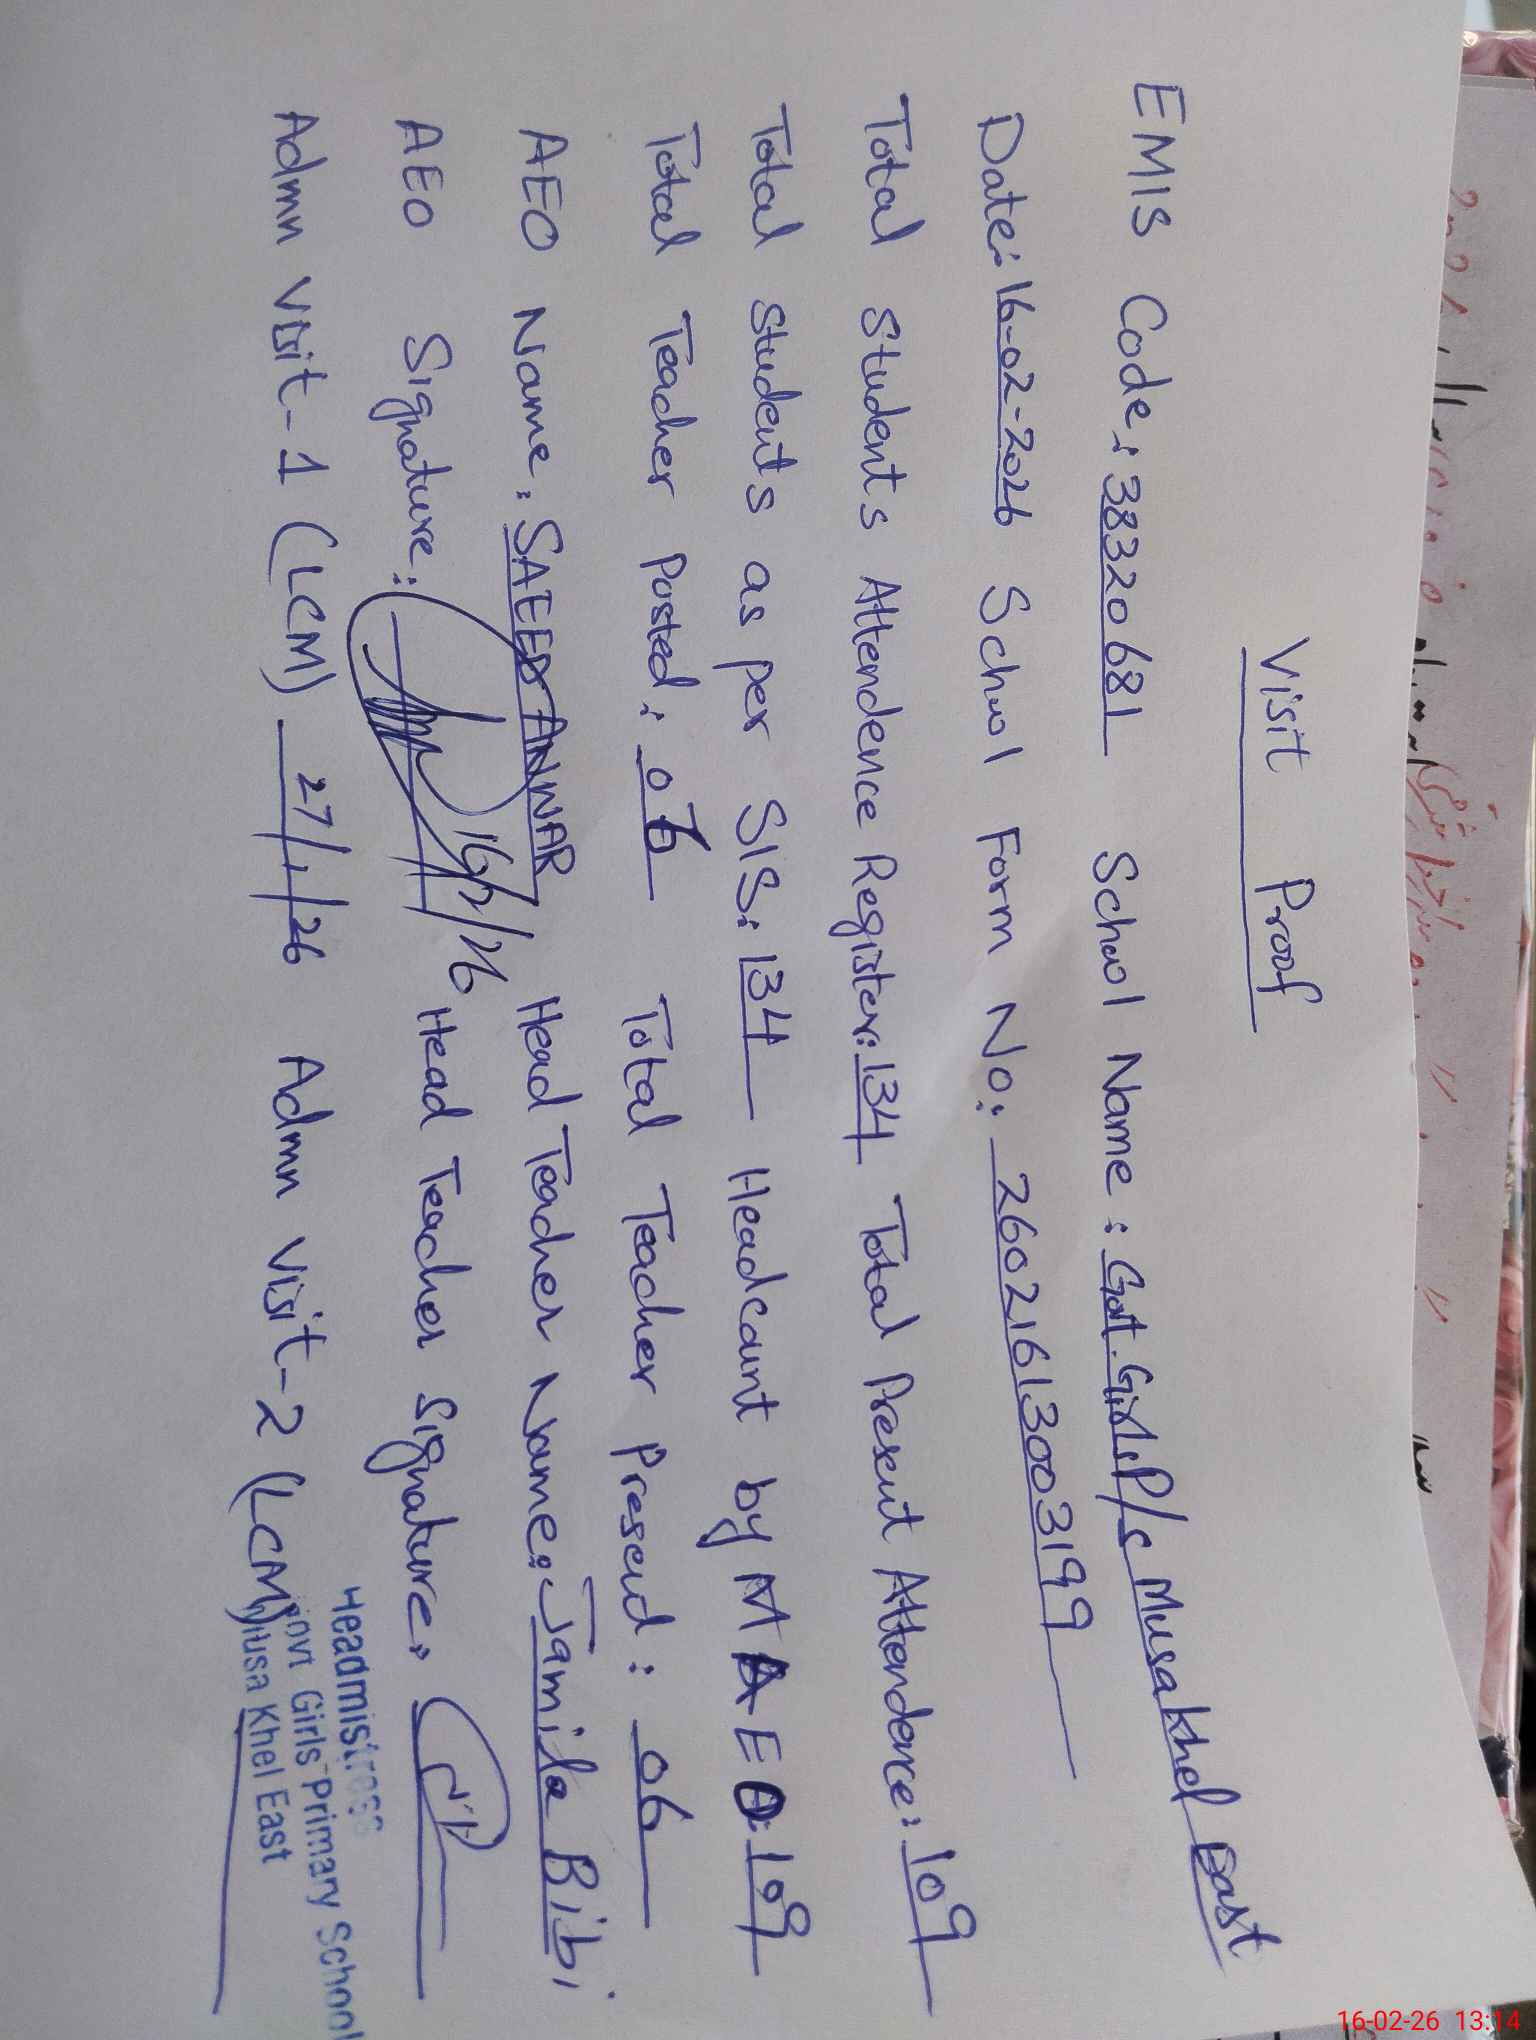 Visit Proof
EMIS Code: 38320681 School Name: Govt. Girls P/s Musakhel East
Date: 16-02-2026 School Form No: 26021613003199
Total Students Attendence Register: 134 Total Present Attendence: 109
Total Students as per SIS: 134 Headcount by MAEO: 109
Total Teacher Posted: 06 Total Teacher Present: 06
AEO Name: SAEED ANWAR Head Teacher Name: Jamila Bibi
AEO Signature: 16/2/26 Head Teacher Signature:
Admn Visit-1 (LCM) 27/1/26 Admn Visit-2 (LCM)
Headmistress
Govt Girls Primary School
Musa Khel East
16-02-26 13:14